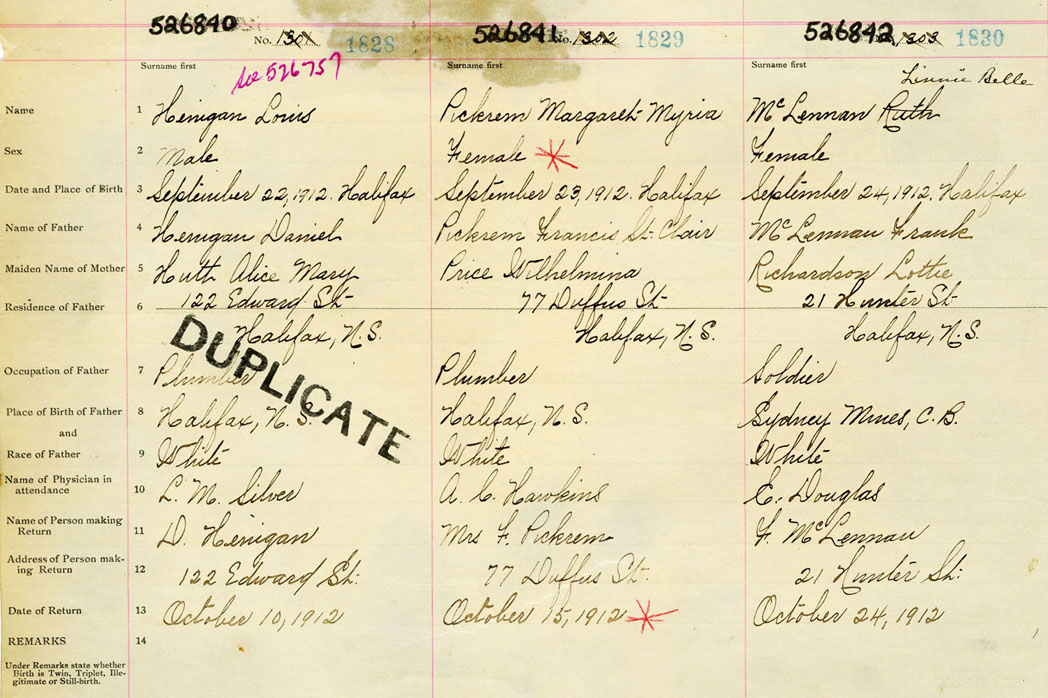 526840 526841 526842
No. 1301 1828 No. 1302 1829 1303 1830
Surname first Surname first Surname first
see 526757 Linnie Belle
Name 1 Henigan Louis Pickrem Margaret Myria McLennan Ruth
Sex 2 Male Female Female
Date and Place of Birth 3 September 22, 1912. Halifax September 23, 1912. Halifax September 24, 1912. Halifax
Name of Father 4 Henigan Daniel Pickrem Francis St. Clair McLennan Frank
Maiden Name of Mother 5 Huth Alice Mary Price Wilhelmina Richardson Lottie
Residence of Father 6 122 Edward St. 77 Duffus St. 21 Hunter St.
Halifax, N.S. Halifax, N.S. Halifax, N.S.
DUPLICATE
Occupation of Father 7 Plumber Plumber Soldier
Place of Birth of Father 8 Halifax, N.S. Halifax, N.S. Sydney Mines, C.B.
and
Race of Father 9 White White White
Name of Physician in
attendance 10 L. M. Silver A. C. Hawkins E. Douglas
Name of Person making
Return 11 D. Henigan Mrs F. Pickrem F. McLennan
Address of Person mak-
ing Return 12 122 Edward St. 77 Duffus St. 21 Hunter St.
Date of Return 13 October 10, 1912 October 15, 1912 October 24, 1912
REMARKS 14
Under Remarks state whether
Birth is Twin, Triplet, Ille-
gitimate or Still-birth.